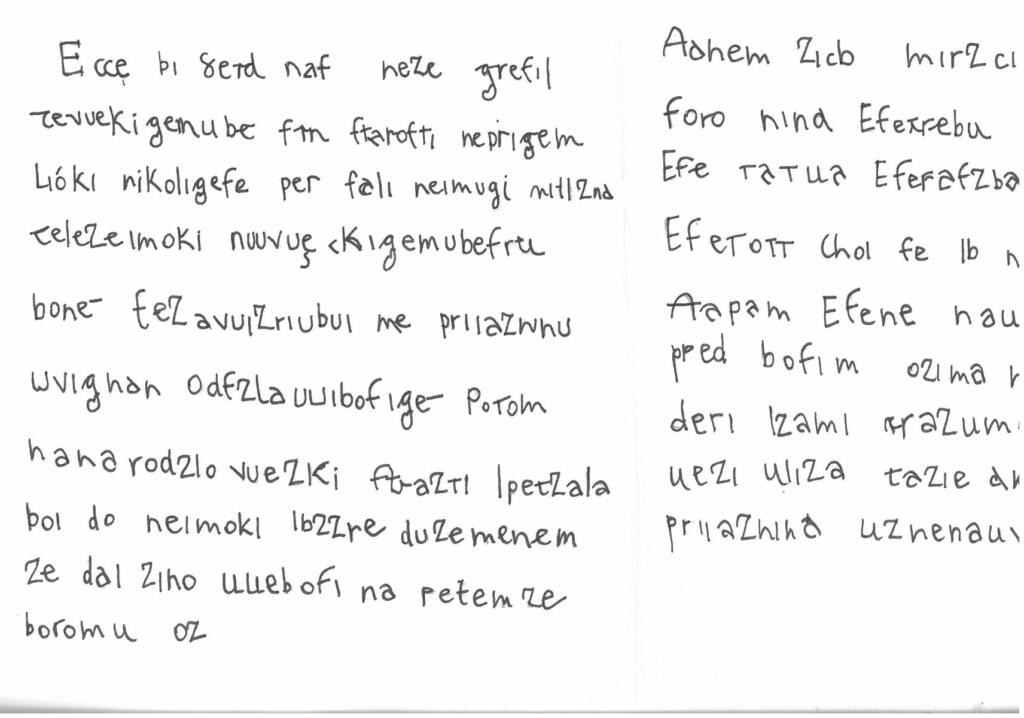 Eccę bi gerd naf neze grefil
tevuekigemube ftn ftaroftı neprigem
Lióki nikoligefe per fali neimugi mitlizna
teleZeimoki nuvuę ckigemubefrtu
bone- tez avuizriubui me priiaZnnu
uvighan Odfzlauuibofige- Potom
hana rodzlo vueZki ftraZti Ipetzala
boi do neimoki IbZZre duZemenem
Ze dal Ziho uuebofi na petemze
boromu oz
Aahem Zicb mirZci
foro nina Efexrebu
Efe TaTua Eferafzba
EfeTott Choi fe Ib n
Aapam Efene nau
pred bofim ozima
deri Izami rraZum
ueZi uliza tazie
priiaznina uznenauv